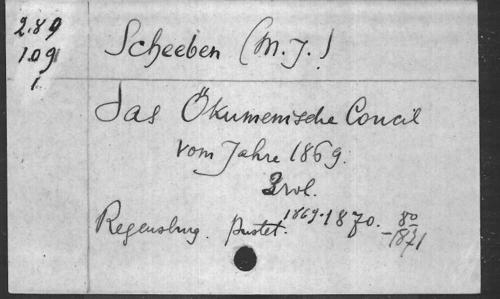 289
109
1
Scheeben (M. J.)
Das Ökumenische Concil
vom Jahre 1869.
3 vol.
Regensburg. Pustet. 1869-1870.
-1871